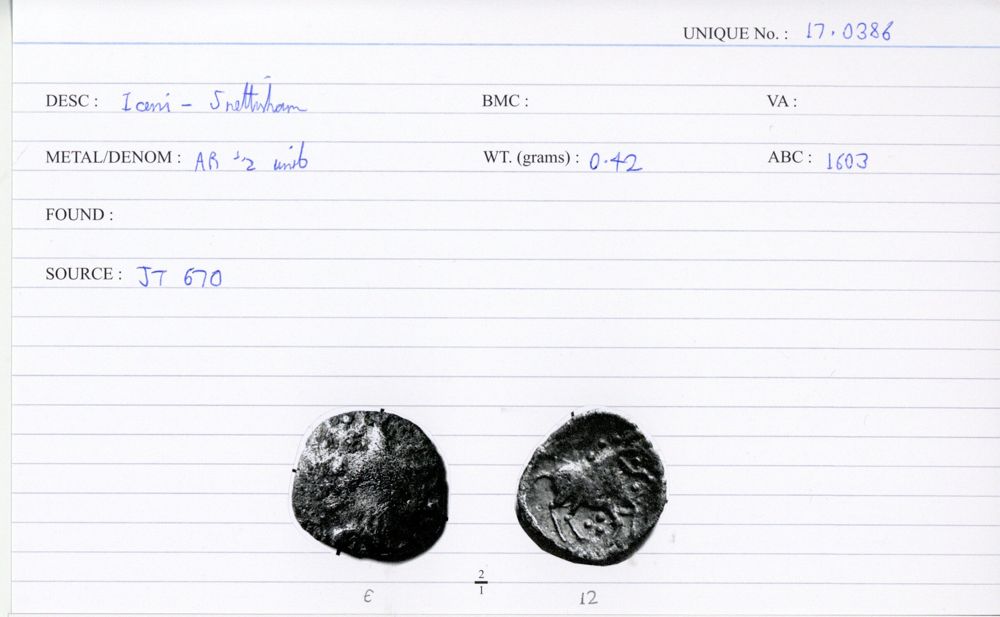 UNIQUE No. : 17.0386
DESC : Iceni - Snettisham BMC : VA :
METAL/DENOM : AR ½ unit WT. (grams) : 0.42 ABC : 1603
FOUND :
SOURCE : JT 670
2/1
E 12